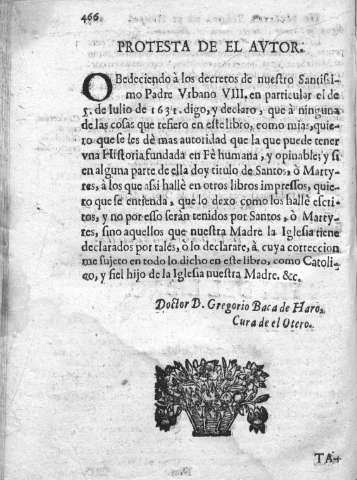 466
PROTESTA DE EL AVTOR.
OBedeciendo à los decretos de nuestro Santissi-
mo Padre Vrbano VIII. en particular el de
5. de Iulio de 1631. digo, y declaro, que à ninguna
de las cosas que refiero en este libro, como mias, quie-
ro que se les dè mas autoridad que la que puede tener
vna Historia fundada en Fè humana, y opinable; y si
en alguna parte de ella doy titulo de Santos, ò Marty-
res, à los que assi hallè en otros libros impressos, quie-
ro que se entienda, que lo dexo como los hallè escri-
tos, y no por esso seràn tenidos por Santos, ò Marty-
res, sino aquellos que nuestra Madre la Iglesia tiene
declarados por tales, ò lo declarare, à cuya correccion
me sujeto en todo lo dicho en este libro, como Catoli-
co, y fiel hijo de la Iglesia nuestra Madre. &c.
Doctor D. Gregorio Baca de Haro.
Cura de el Otero.
TA-